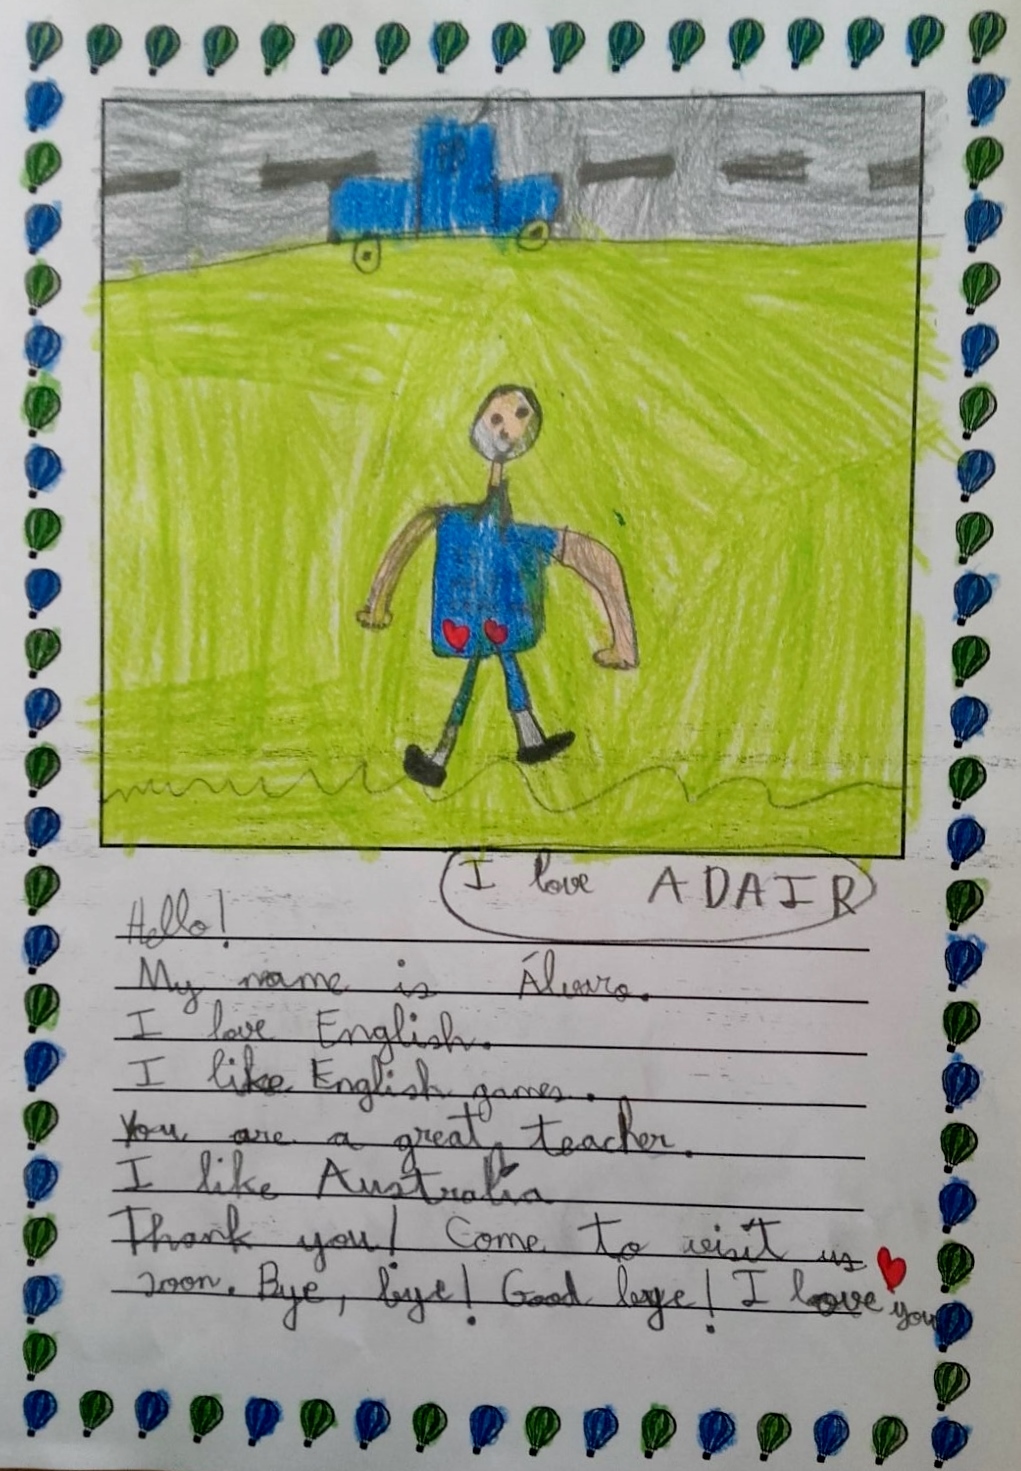 I love ADAIR
Hello!
My name is Álvaro.
I love English.
I like English games.
You are a great teacher.
I like Australia
Thank you! Come to visit us
soon. Bye, bye! Good bye! I love you